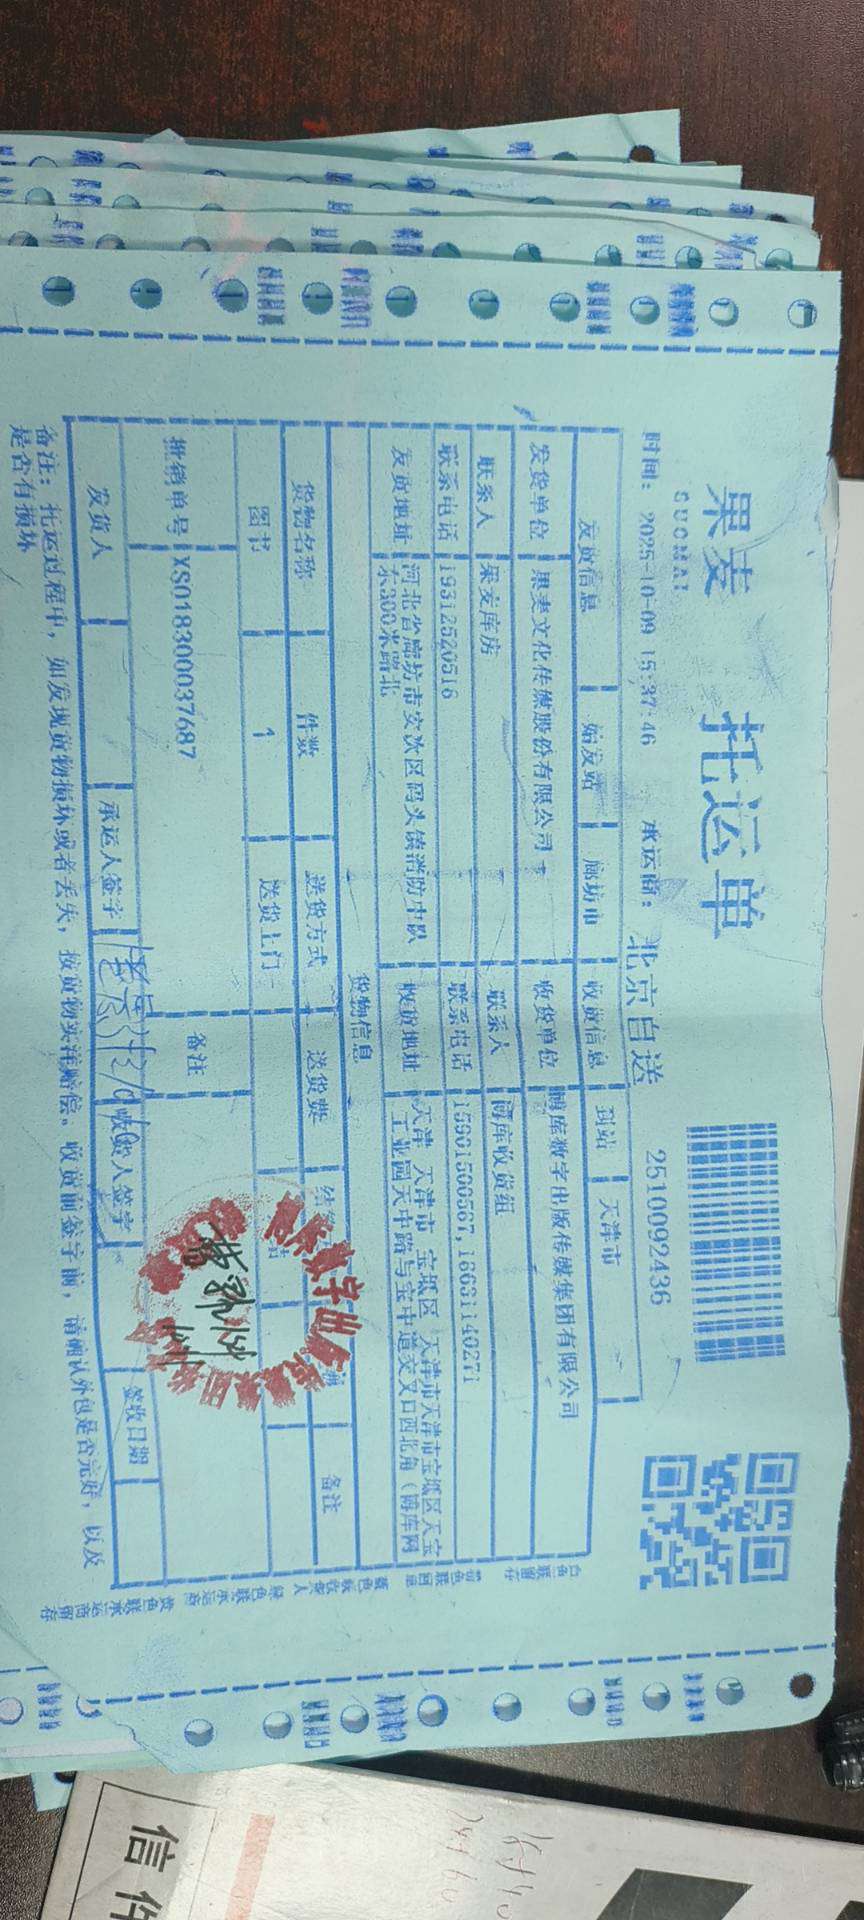 果麦
GUOMAI
托运单
2510092436
时间: 2025-10-09 15:37:46 承运商: 北京自送
发货信息 始发站 廊坊市 收货信息 到站 天津市
发货单位 果麦文化传媒股份有限公司 收货单位 博库数字出版传媒集团有限公司
联系人 果麦库房 联系人 博库收货组
联系电话 19312520516 联系电话
发货地址 河北省廊坊市安次区码头镇消防中队东300米路北 收货地址 天津 天津市 宝坻区 天津市天津市宝坻区天宝工业园天中路与宝中道交叉口西北角(博库网
货物信息
货物名称 件数 送货方式 送货费 备注
图书 1 送货上门
批销单号 XS018300037687 备注
发货人 承运人签字 收货人签字 签收日期
备注: 托运过程中, 如发现货物损坏或者丢失, 按货物实洋赔偿。收货前签字前, 请确认外包是否完好, 以及
是否有损坏
信件